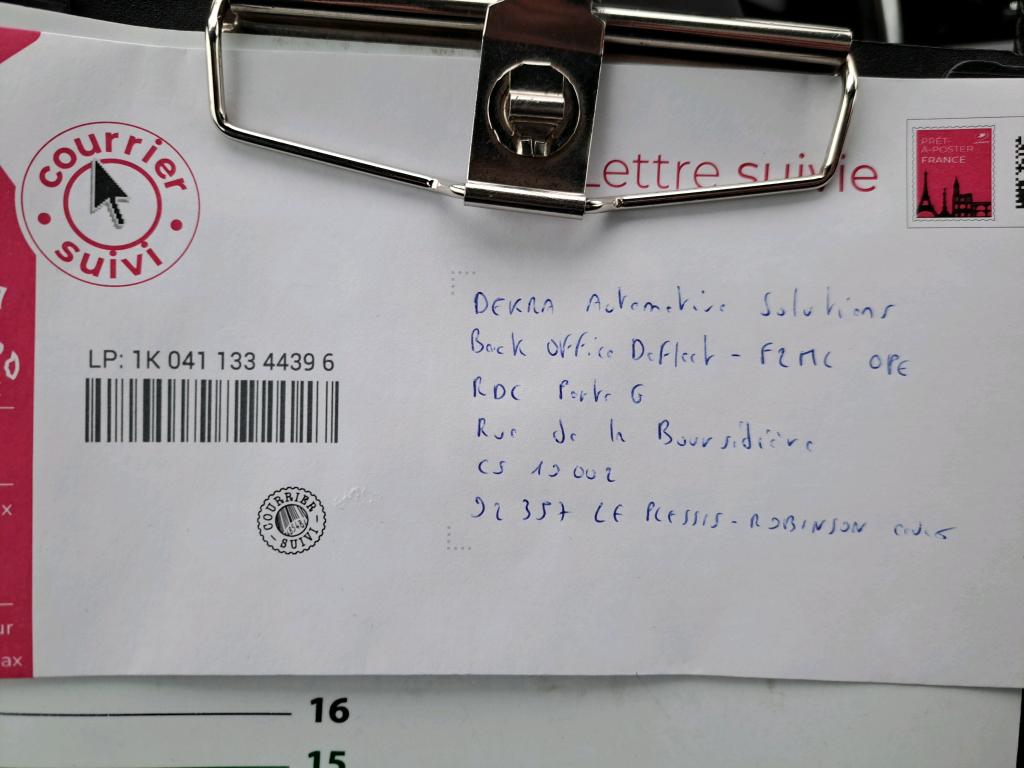 courrier
suivi
Lettre suivie
PRÊT-
À-POSTER
FRANCE
LP: 1K 041 133 4439 6
COURRIER
SUIVI
DEKRA Automotive Solutions
Back Office Defleet - F2MC OPE
RDC Porte G
Rue de la Boursidière
CS 19002
92 357 LE PLESSIS-ROBINSON cedex
x
ur
ax
16
15